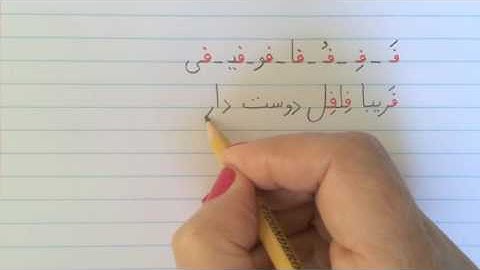 فَ - فِ - فُ - فا - فو - فیـ - فی
فَریبا فِلفِل دوست دار